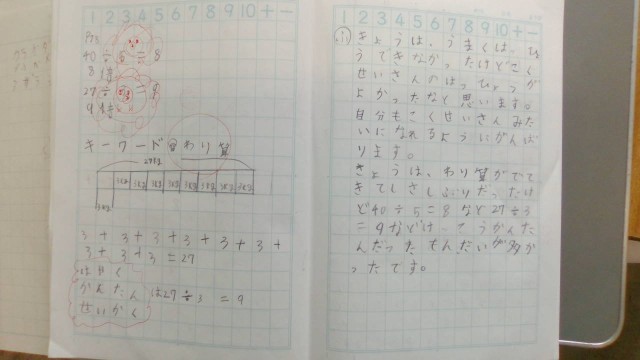 1 2 3 4 5 6 7 8 9 10 + −
P86
40 ÷ 5 = 8
8倍
27 ÷ 3 = 9
9倍
キーワード@わり算
27kg
3kg 3kg 3kg 3kg 3kg 3kg 3kg 3kg
3kg
3 + 3 + 3 + 3 + 3 + 3 +
3 + 3 + 3 = 27
はやく
かんたん は27÷3 = 9
せいかく
1 2 3 4 5 6 7 8 9 10 + −
きょうは、うまくは、ひょ
うできなかったけどこく
せいさんのはっぴょうが
よかったなと思います。
自分もこくせいさんみた
いになれるようにがんば
ります。
きょうは、わり算がでて
きてひさしぶりだったけ
ど40÷5=8など27÷3
=9などけっこうかんた
んだったもんだいが多か
ったです。